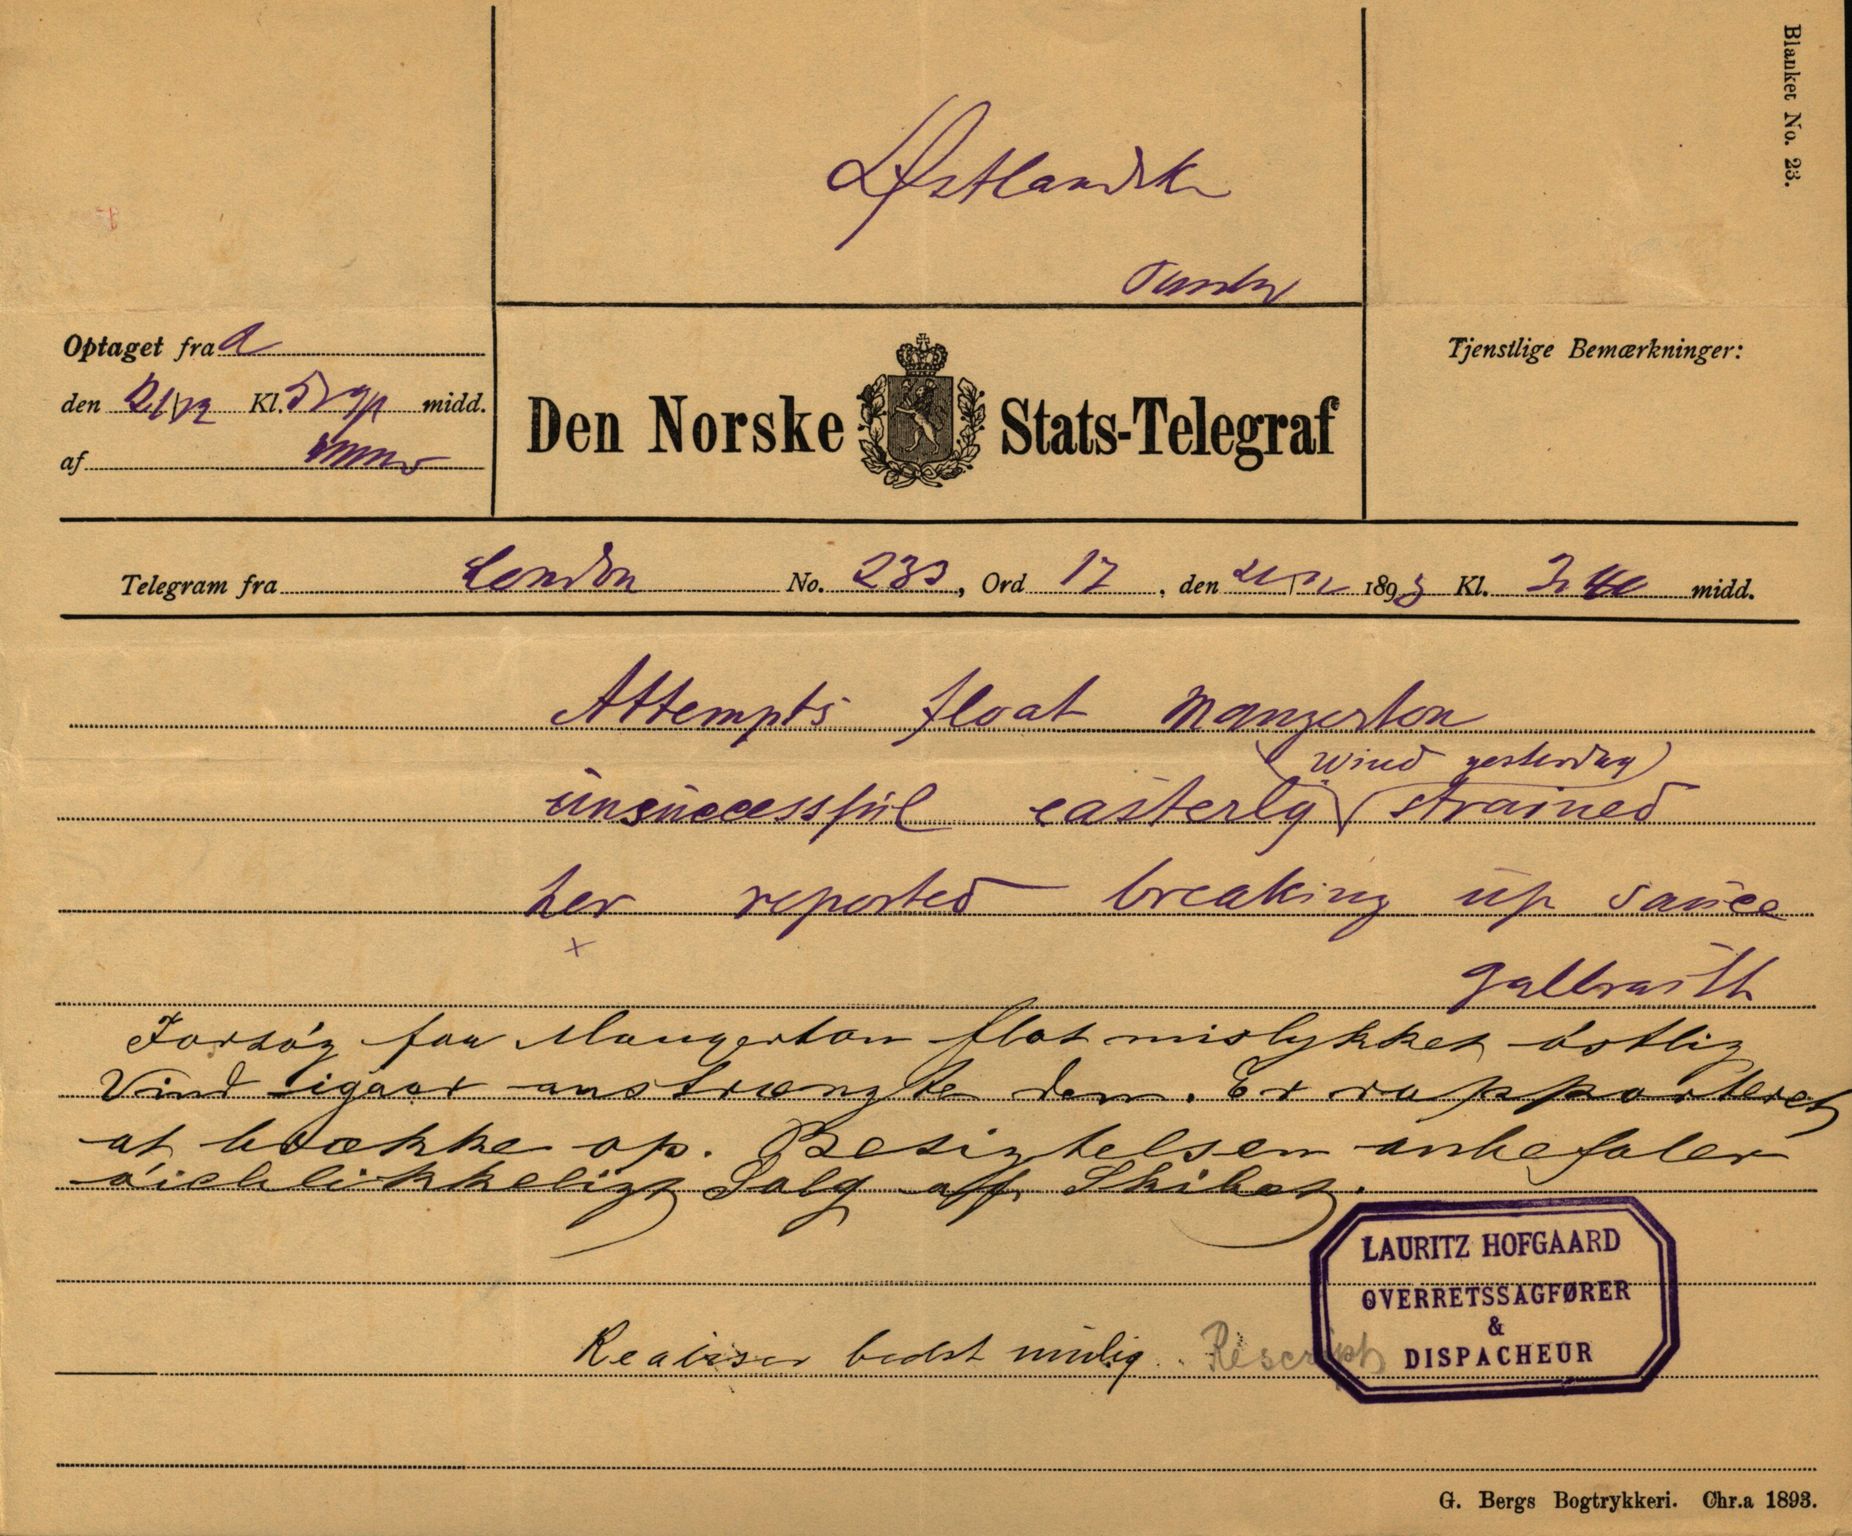 Blanket No. 23.
Østlandske
Optaget fra a
den 21/12 Kl. midd.
af
Den Norske Stats-Telegraf
Tjenstlige Bemærkninger:
Telegram fra London No. 233, Ord 17, den 21/12 1893 Kl. 3 40 midd.
Attempts float Mangerton
(wind yesterday)
unsuccessful easterly strained
her reported breaking up sauce
x
galbraith
Forsøg faa Mangerton flot mislykket østlig
Vind igaar anstrængte den. Er rapporteret
at brække op. Besigtelsen anbefaler
øieblikkeligt Salg aff Skibet.
LAURITZ HOFGAARD
OVERRETSSAGFØRER
&
DISPACHEUR
Realiser bedst mulig. Rescript
G. Bergs Bogtrykkeri. Chr.a 1893.